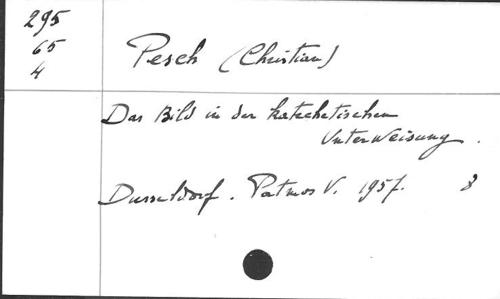 295
65
4
Pesch (Christian)
Das Bild in der katechetischen
Unterweisung.
Dusseldorf. Patmos V. 1957. 8